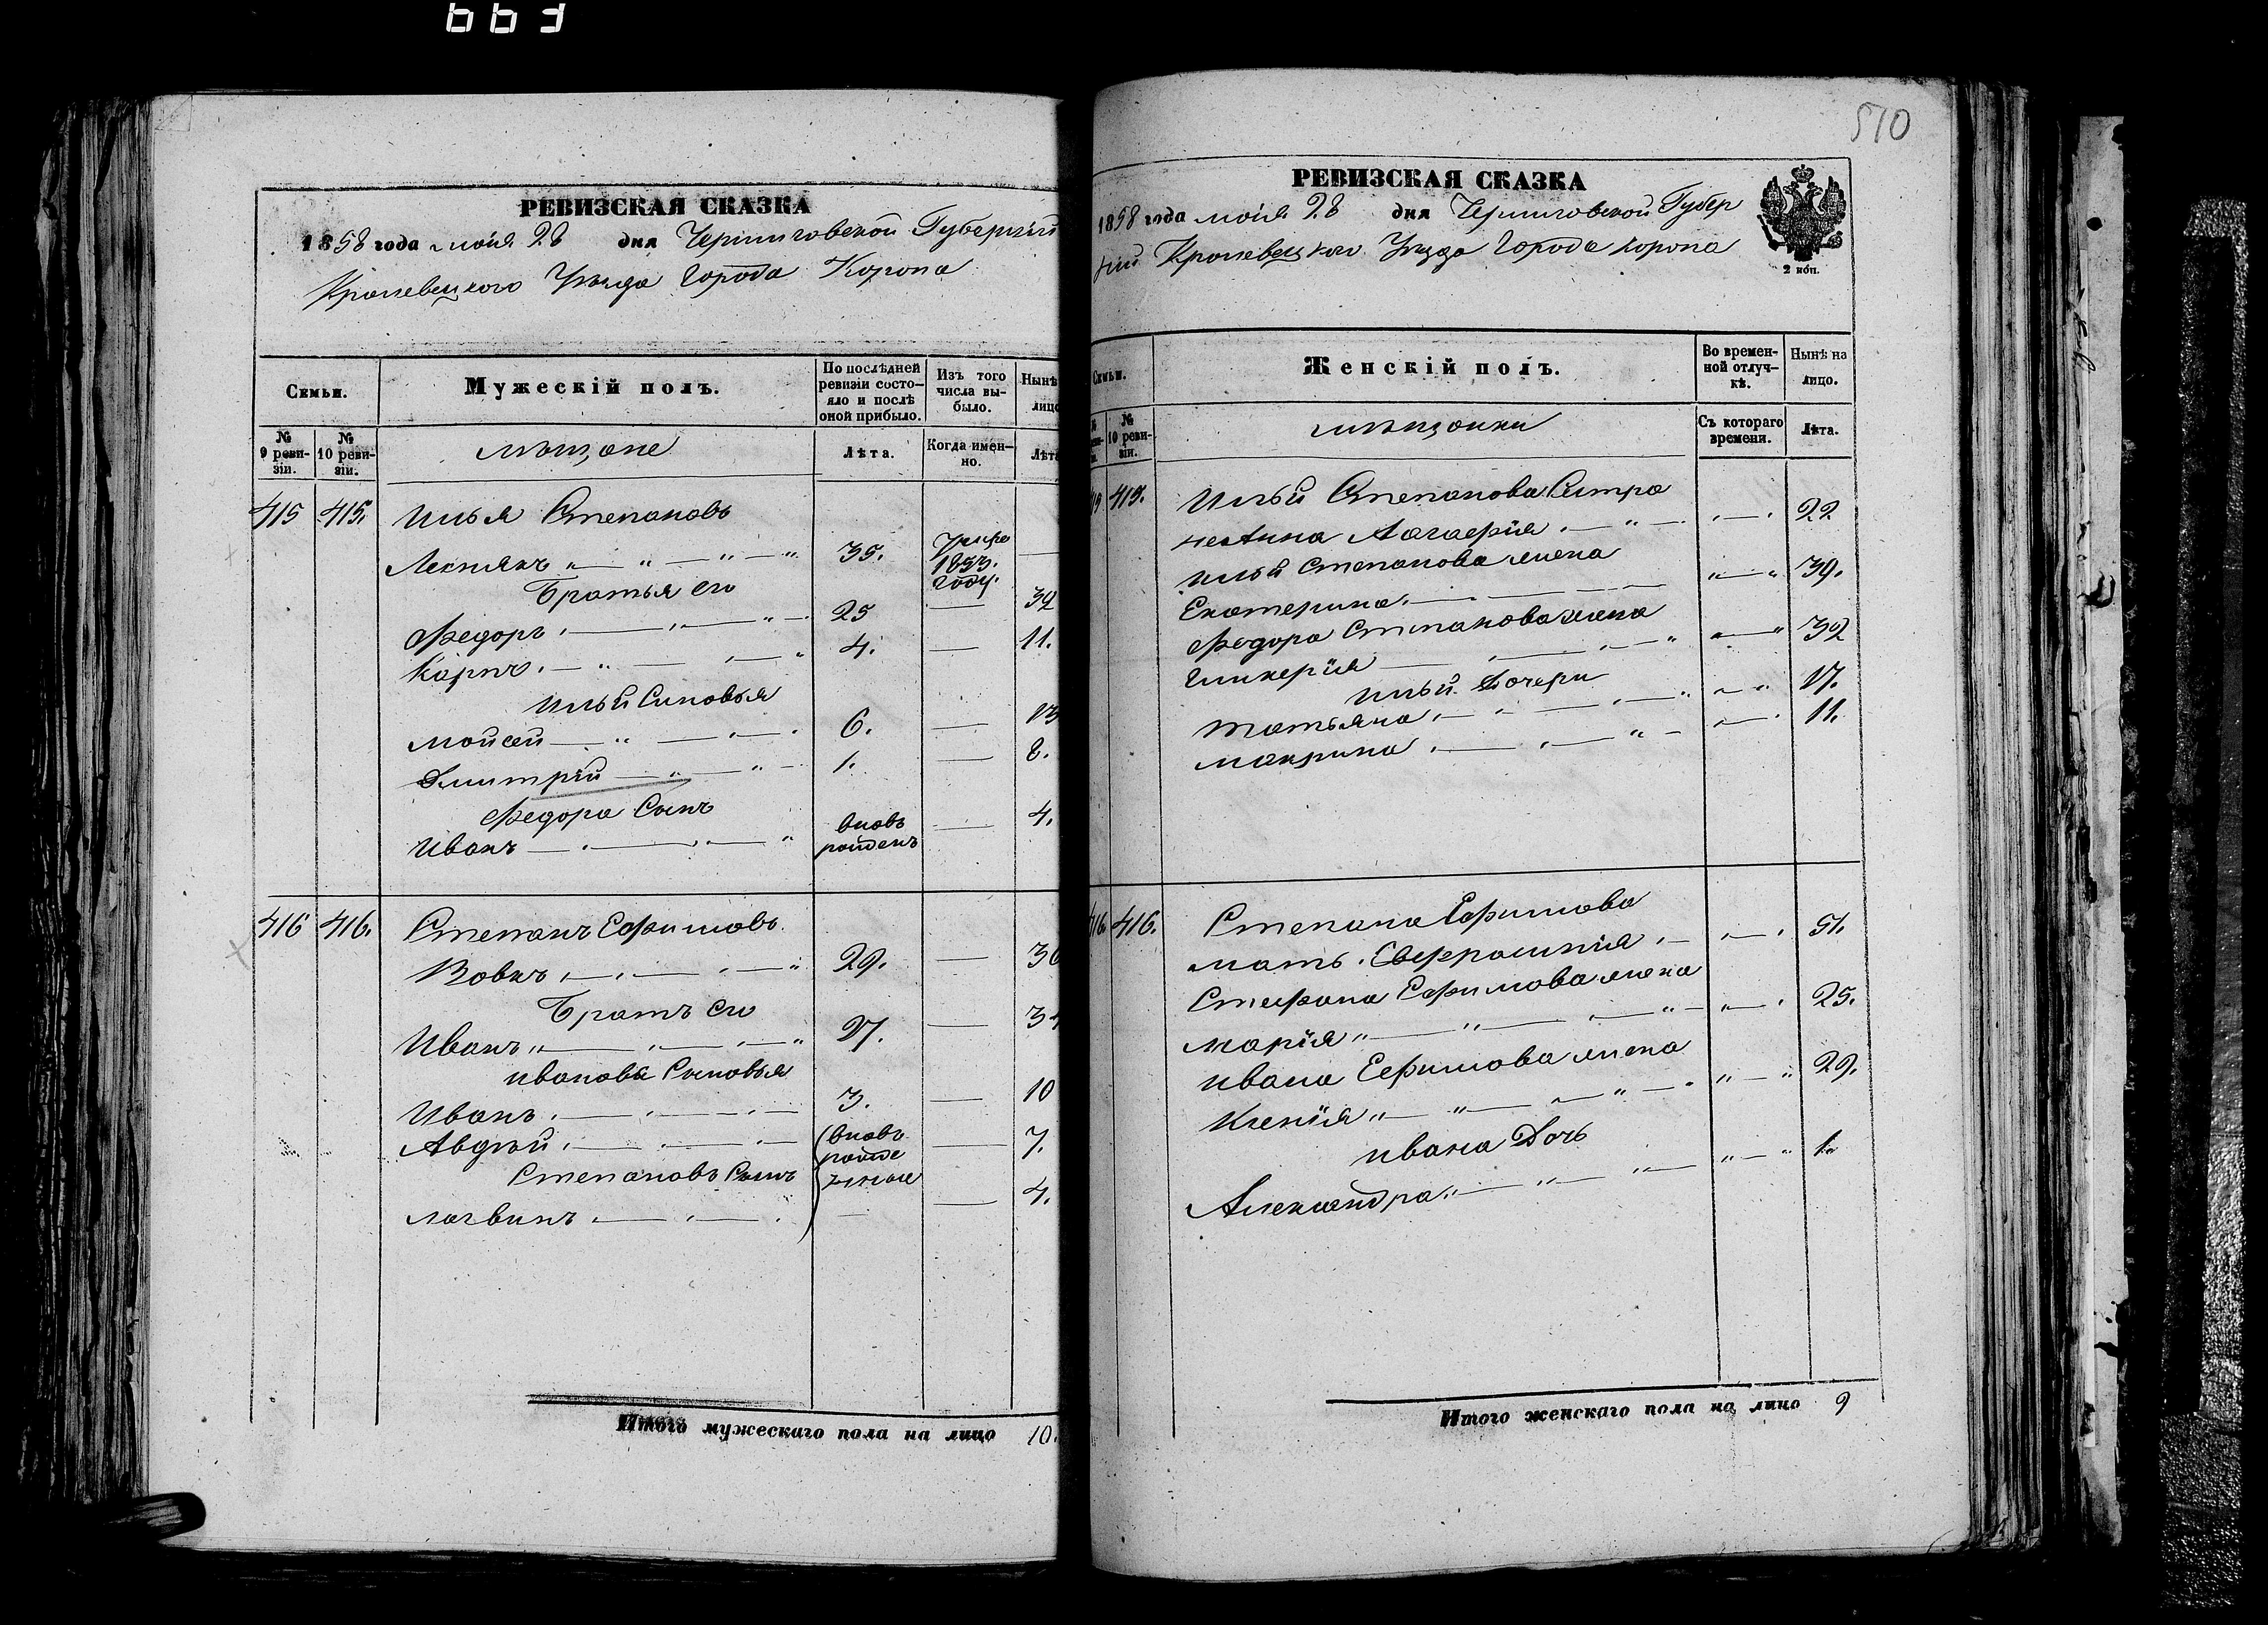 663
РЕВИЗСКАЯ СКАЗКА
1858 года мая 28 дня Черниговской Губерніи
Кролевецкого Уезда Города Коропа
Семьи.
Мужескій полъ.
По послѣдней ревизіи состо-
яло и послѣ
оной прибыло.
Изъ того
числа вы-
было.
Нынѣ
лицо
№
9 реви-
зіи.
№
10 реви-
зіи.
мѣщане
Лѣта.
Когда имен-
но.
Лѣта
415 415. Илья Степановъ
35. умре 1853. году.
Братья его
Федоръ 25 — 32
Карпъ 4. — 11.
Ильи Синовья
Мойсей 6. — 13
Дмитрій 1. — 8.
Федора Сынъ
Иванъ вновь рожденъ — 4.
416 416. Степанъ Ефимовъ
Вовкъ 29. — 36
Братъ его
Иванъ 27. — 34
Иванова Сыновья
Иванъ 3. — 10
Авдѣй (вновь рожденные — 7.
Степановъ Сынъ
Логвинъ — 4.
Итого мужескаго пола на лицо 10.
510
РЕВИЗСКАЯ СКАЗКА
1858 года мая 28 дня Черниговской Губер
ніи Кролевецкого Уезда Города Коропа
2 коп.
Семьи.
Женскій полъ.
Во времен-
ной отлуч-
кѣ.
Нынѣ на
лицо.
№
10 реви-
зіи.
мѣщанки
Съ котораго
времени.
Лѣта.
415. Ильи Степанова Сестра
22
Ильи Степанова жена
Екатерина 39.
Федора Степанова жена
Гликерія 32
Ильи Дочери
Татьяна 17.
Макрина 11.
416. 416. Степана Ефимова
мать Евфросинія 51.
Стефана Ефимова жена
Марія 25.
Ивана Ефимова жена
Ксенія 29.
Ивана Дочь
Александра 1.
Итого женскаго пола на лицо 9